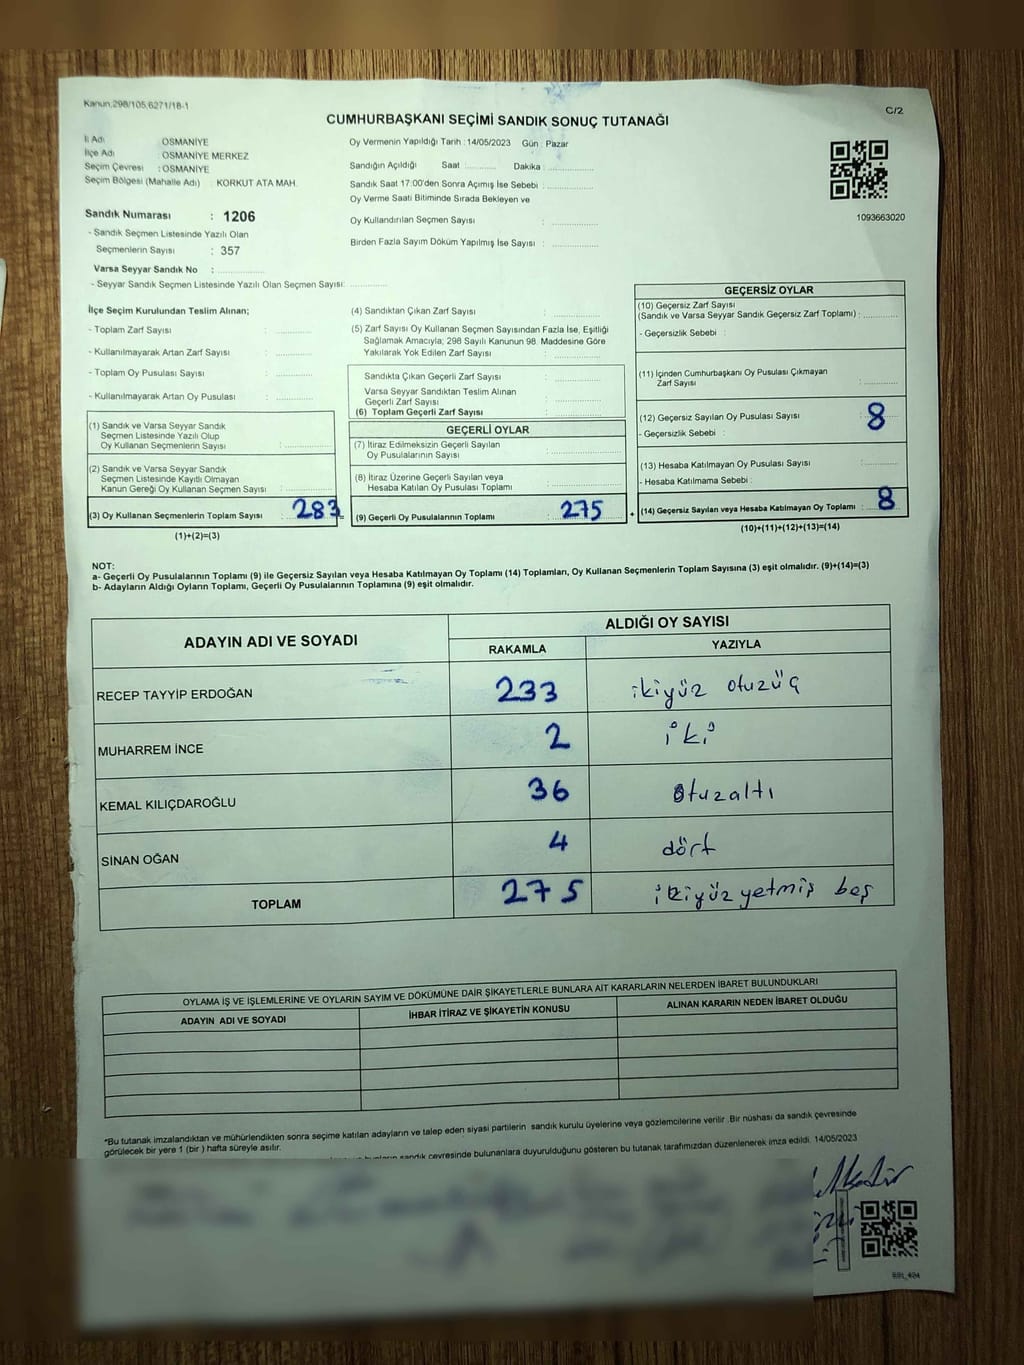 Kanun,298/105,6271/18-1
C/2
CUMHURBAŞKANI SEÇİMİ SANDIK SONUÇ TUTANAĞI
İl Adı : OSMANİYE
İlçe Adı OSMANİYE MERKEZ
Seçim Çevresi : OSMANİYE
Seçim Bölgesi (Mahalle Adı) : KORKUT ATA MAH.
Sandık Numarası : 1206
- Sandık Seçmen Listesinde Yazılı Olan
Seçmenlerin Sayısı : 357
Varsa Seyyar Sandık No : ..............
- Seyyar Sandık Seçmen Listesinde Yazılı Olan Seçmen Sayısı: ..............
Oy Vermenin Yapıldığı Tarih : 14/05/2023 Gün : Pazar
Sandığın Açıldığı Saat : ........... Dakika : ..............
Sandık Saat 17:00'den Sonra Açımış İse Sebebi : ..............
Oy Verme Saati Bitiminde Sırada Bekleyen ve
Oy Kullandırılan Seçmen Sayısı : ..............
Birden Fazla Sayım Döküm Yapılmış İse Sayısı : ..............
1093663020
İlçe Seçim Kurulundan Teslim Alınan;
- Toplam Zarf Sayısı : ..............
- Kullanılmayarak Artan Zarf Sayısı : ..............
- Toplam Oy Pusulası Sayısı : ..............
- Kullanılmayarak Artan Oy Pusulası : ..............
(1) Sandık ve Varsa Seyyar Sandık
Seçmen Listesinde Yazılı Olup
Oy Kullanan Seçmenlerin Sayısı : ..............
(2) Sandık ve Varsa Seyyar Sandık
Seçmen Listesinde Kayıtlı Olmayan
Kanun Gereği Oy Kullanan Seçmen Sayısı : ..............
(3) Oy Kullanan Seçmenlerin Toplam Sayısı : 283
(1)+(2)=(3)
(4) Sandıktan Çıkan Zarf Sayısı : ..............
(5) Zarf Sayısı Oy Kullanan Seçmen Sayısından Fazla İse, Eşitliği
Sağlamak Amacıyla; 298 Sayılı Kanunun 98. Maddesine Göre
Yakılarak Yok Edilen Zarf Sayısı : ..............
Sandıkta Çıkan Geçerli Zarf Sayısı : ..............
Varsa Seyyar Sandıktan Teslim Alınan
Geçerli Zarf Sayısı : ..............
(6) Toplam Geçerli Zarf Sayısı : ..............
GEÇERLİ OYLAR
(7) İtiraz Edilmeksizin Geçerli Sayılan
Oy Pusulalarının Sayısı : ..............
(8) İtiraz Üzerine Geçerli Sayılan veya
Hesaba Katılan Oy Pusulası Toplamı : ..............
= (9) Geçerli Oy Pusulalarının Toplamı : 275
GEÇERSİZ OYLAR
(10) Geçersiz Zarf Sayısı
(Sandık ve Varsa Seyyar Sandık Geçersiz Zarf Toplamı) : ..............
- Geçersizlik Sebebi :
(11) İçinden Cumhurbaşkanı Oy Pusulası Çıkmayan
Zarf Sayısı : ..............
(12) Geçersiz Sayılan Oy Pusulası Sayısı : 8
- Geçersizlik Sebebi :
(13) Hesaba Katılmayan Oy Pusulası Sayısı : ..............
- Hesaba Katılmama Sebebi :
+ (14) Geçersiz Sayılan veya Hesaba Katılmayan Oy Toplamı : 8
(10)+(11)+(12)+(13)=(14)
NOT:
a- Geçerli Oy Pusulalarının Toplamı (9) ile Geçersiz Sayılan veya Hesaba Katılmayan Oy Toplamı (14) Toplamları, Oy Kullanan Seçmenlerin Toplam Sayısına (3) eşit olmalıdır. (9)+(14)=(3)
b- Adayların Aldığı Oyların Toplamı, Geçerli Oy Pusulalarının Toplamına (9) eşit olmalıdır.
ADAYIN ADI VE SOYADI
ALDIĞI OY SAYISI
RAKAMLA YAZIYLA
RECEP TAYYİP ERDOĞAN 233 ikiyüz otuzüç
MUHARREM İNCE 2 iki
KEMAL KILIÇDAROĞLU 36 otuzaltı
SİNAN OĞAN 4 dört
TOPLAM 275 ikiyüz yetmiş beş
OYLAMA İŞ VE İŞLEMLERİNE VE OYLARIN SAYIM VE DÖKÜMÜNE DAİR ŞİKAYETLERLE BUNLARA AİT KARARLARIN NELERDEN İBARET BULUNDUKLARI
ADAYIN ADI VE SOYADI İHBAR İTİRAZ VE ŞİKAYETİN KONUSU ALINAN KARARIN NEDEN İBARET OLDUĞU
*Bu tutanak imzalandıktan ve mühürlendikten sonra seçime katılan adayların ve talep eden siyasi partilerin sandık kurulu üyelerine veya gözlemcilerine verilir. Bir nüshası da sandık çevresinde
görülecek bir yere 1 (bir ) hafta süreyle asılır.
sandık çevresinde bulunanlara duyurulduğunu gösteren bu tutanak tarafımızdan düzenlenerek imza edildi. 14/05/2023